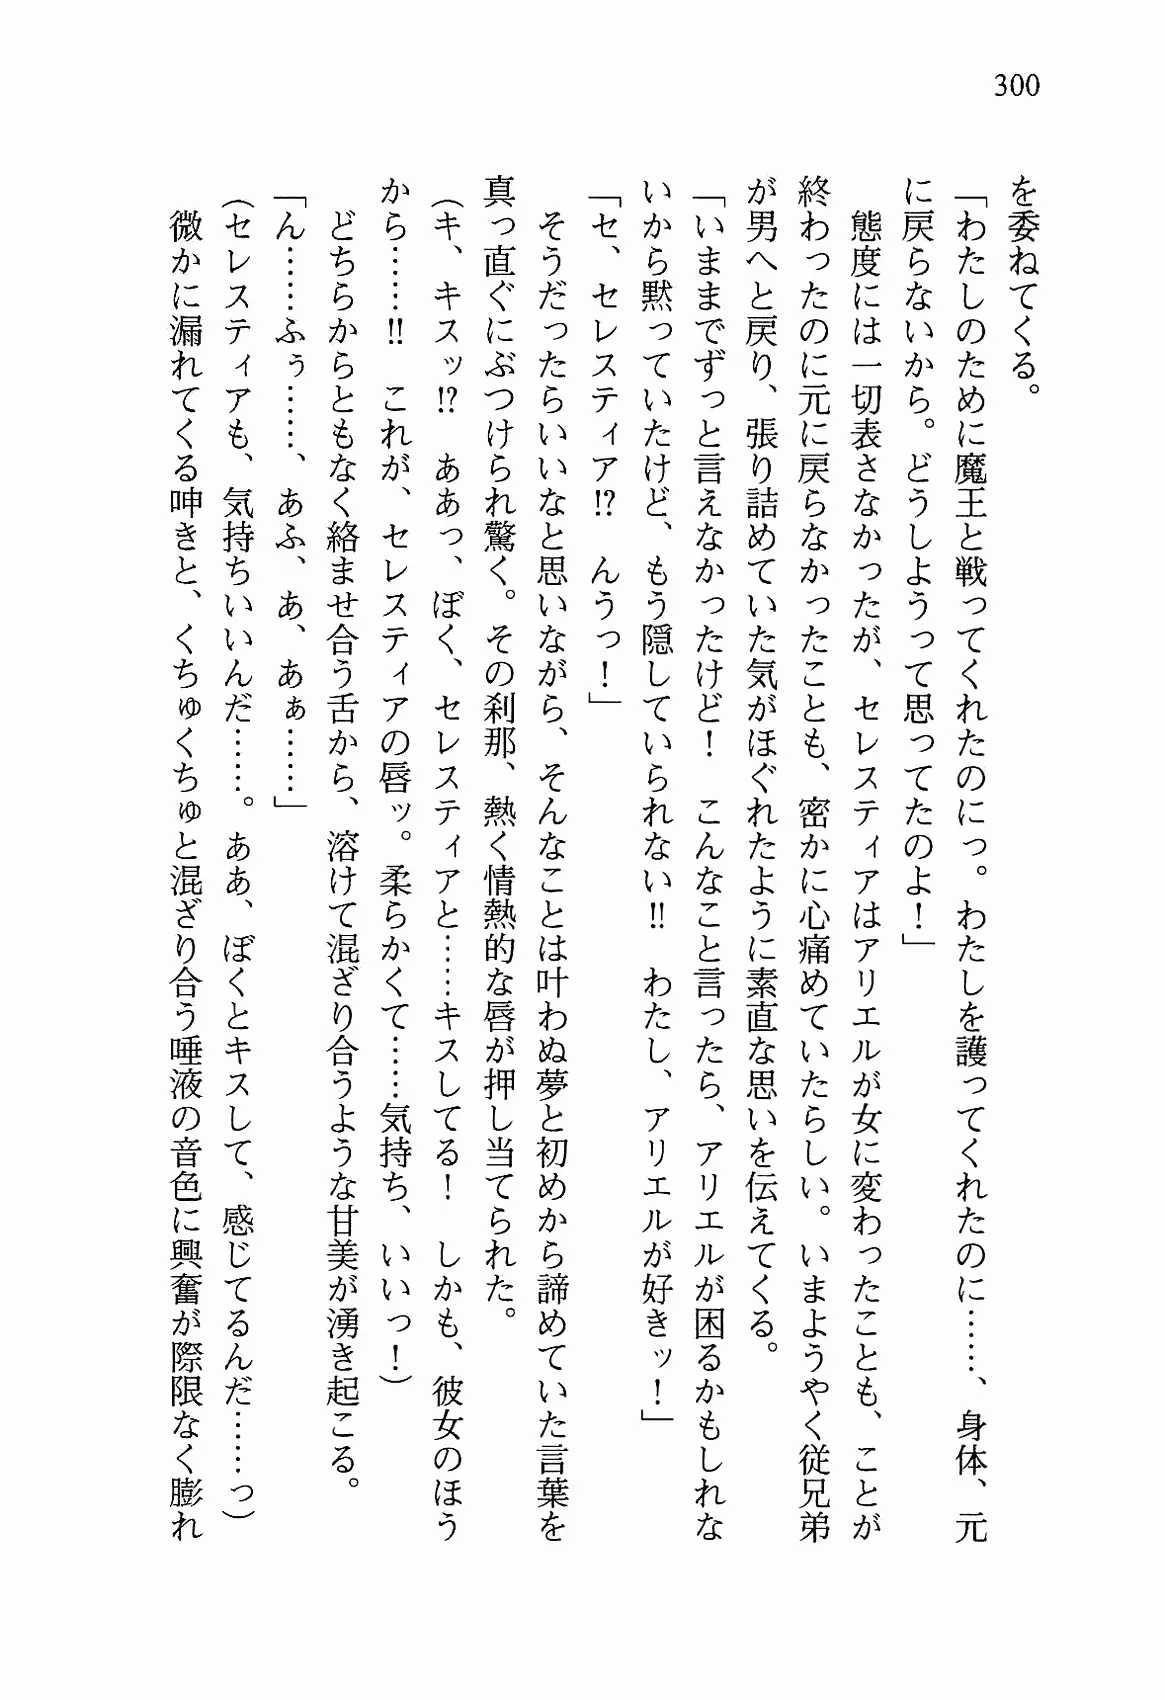 300
を委ねてくる。
「わたしのために魔王と戦ってくれたのにっ。わたしを護ってくれたのに……、身体、元
に戻らないから。どうしようって思ってたのよ！」
　態度には一切表さなかったが、セレスティアはアリエルが女に変わったことも、ことが
終わったのに元に戻らなかったことも、密かに心痛めていたらしい。いまようやく従兄弟
が男へと戻り、張り詰めていた気がほぐれたように素直な思いを伝えてくる。
「いままでずっと言えなかったけど！　こんなこと言ったら、アリエルが困るかもしれな
いから黙っていたけど、もう隠していられない!!　わたし、アリエルが好きッ！」
「セ、セレスティア!?　んうっ！」
　そうだったらいいなと思いながら、そんなことは叶わぬ夢と初めから諦めていた言葉を
真っ直ぐにぶつけられ驚く。その刹那、熱く情熱的な唇が押し当てられた。
（キ、キスッ!?　ああっ、ぼく、セレスティアと……キスしてる！　しかも、彼女のほう
から……!!　これが、セレスティアの唇ッ。柔らかくて……気持ち、いいっ！）
　どちらからともなく絡ませ合う舌から、溶けて混ざり合うような甘美が湧き起こる。
「ん……ふぅ……、あふ、あ、あぁ……」
（セレスティアも、気持ちいいんだ……。ああ、ぼくとキスして、感じてるんだ……っ）
　微かに漏れてくる呻きと、くちゅくちゅと混ざり合う唾液の音色に興奮が際限なく膨れ